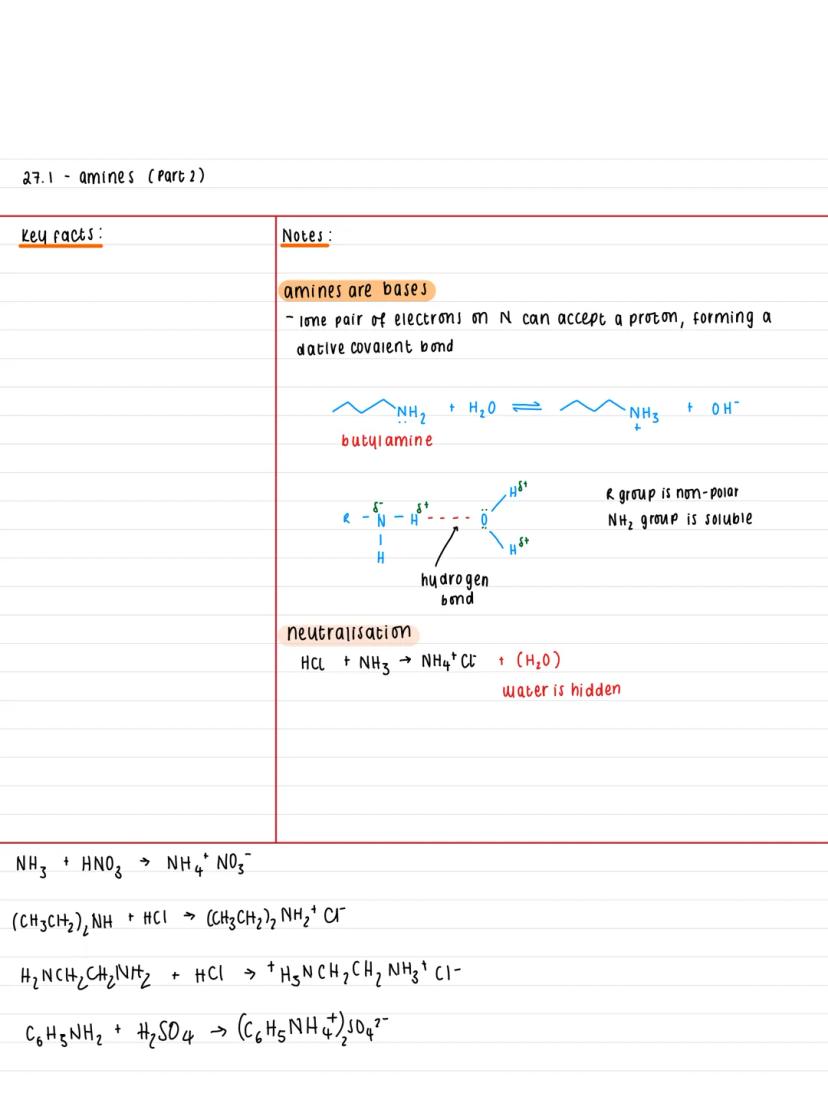 27.1 - amines (Part 2)
Key facts:
Notes:
amines are bases
- lone pair of electrons on N can accept a proton, forming a
dative covalent bond
NH₂ + H₂O ⇌ NH₃ + OH⁻
+
butylamine
R - N - H ---- O
δ⁻ δ⁺
H
H δ⁺
H δ⁺
hydrogen
bond
R group is non-polar
NH₂ group is soluble
neutralisation
HCl + NH₃ → NH₄⁺ Cl⁻ + (H₂O)
water is hidden
NH₃ + HNO₃ → NH₄⁺ NO₃⁻
(CH₃CH₂)₂NH + HCl → (CH₃CH₂)₂NH₂⁺ Cl⁻
H₂NCH₂CH₂NH₂ + HCl → ⁺H₃NCH₂CH₂NH₃⁺ Cl⁻
C₆H₅NH₂ + H₂SO₄ → (C₆H₅NH₄⁺)₂SO₄²⁻